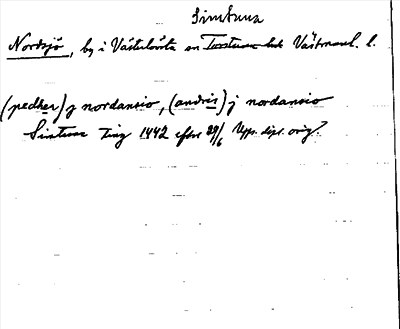 Simtuna
Nordsjö, by i Västerlövsta sn Torstuna hd Västmanl. l.
(pedher) j nordansio, (andris) j nordansio
Simtuna ting 1442 efter 29/6 Upps. dipl. orig.